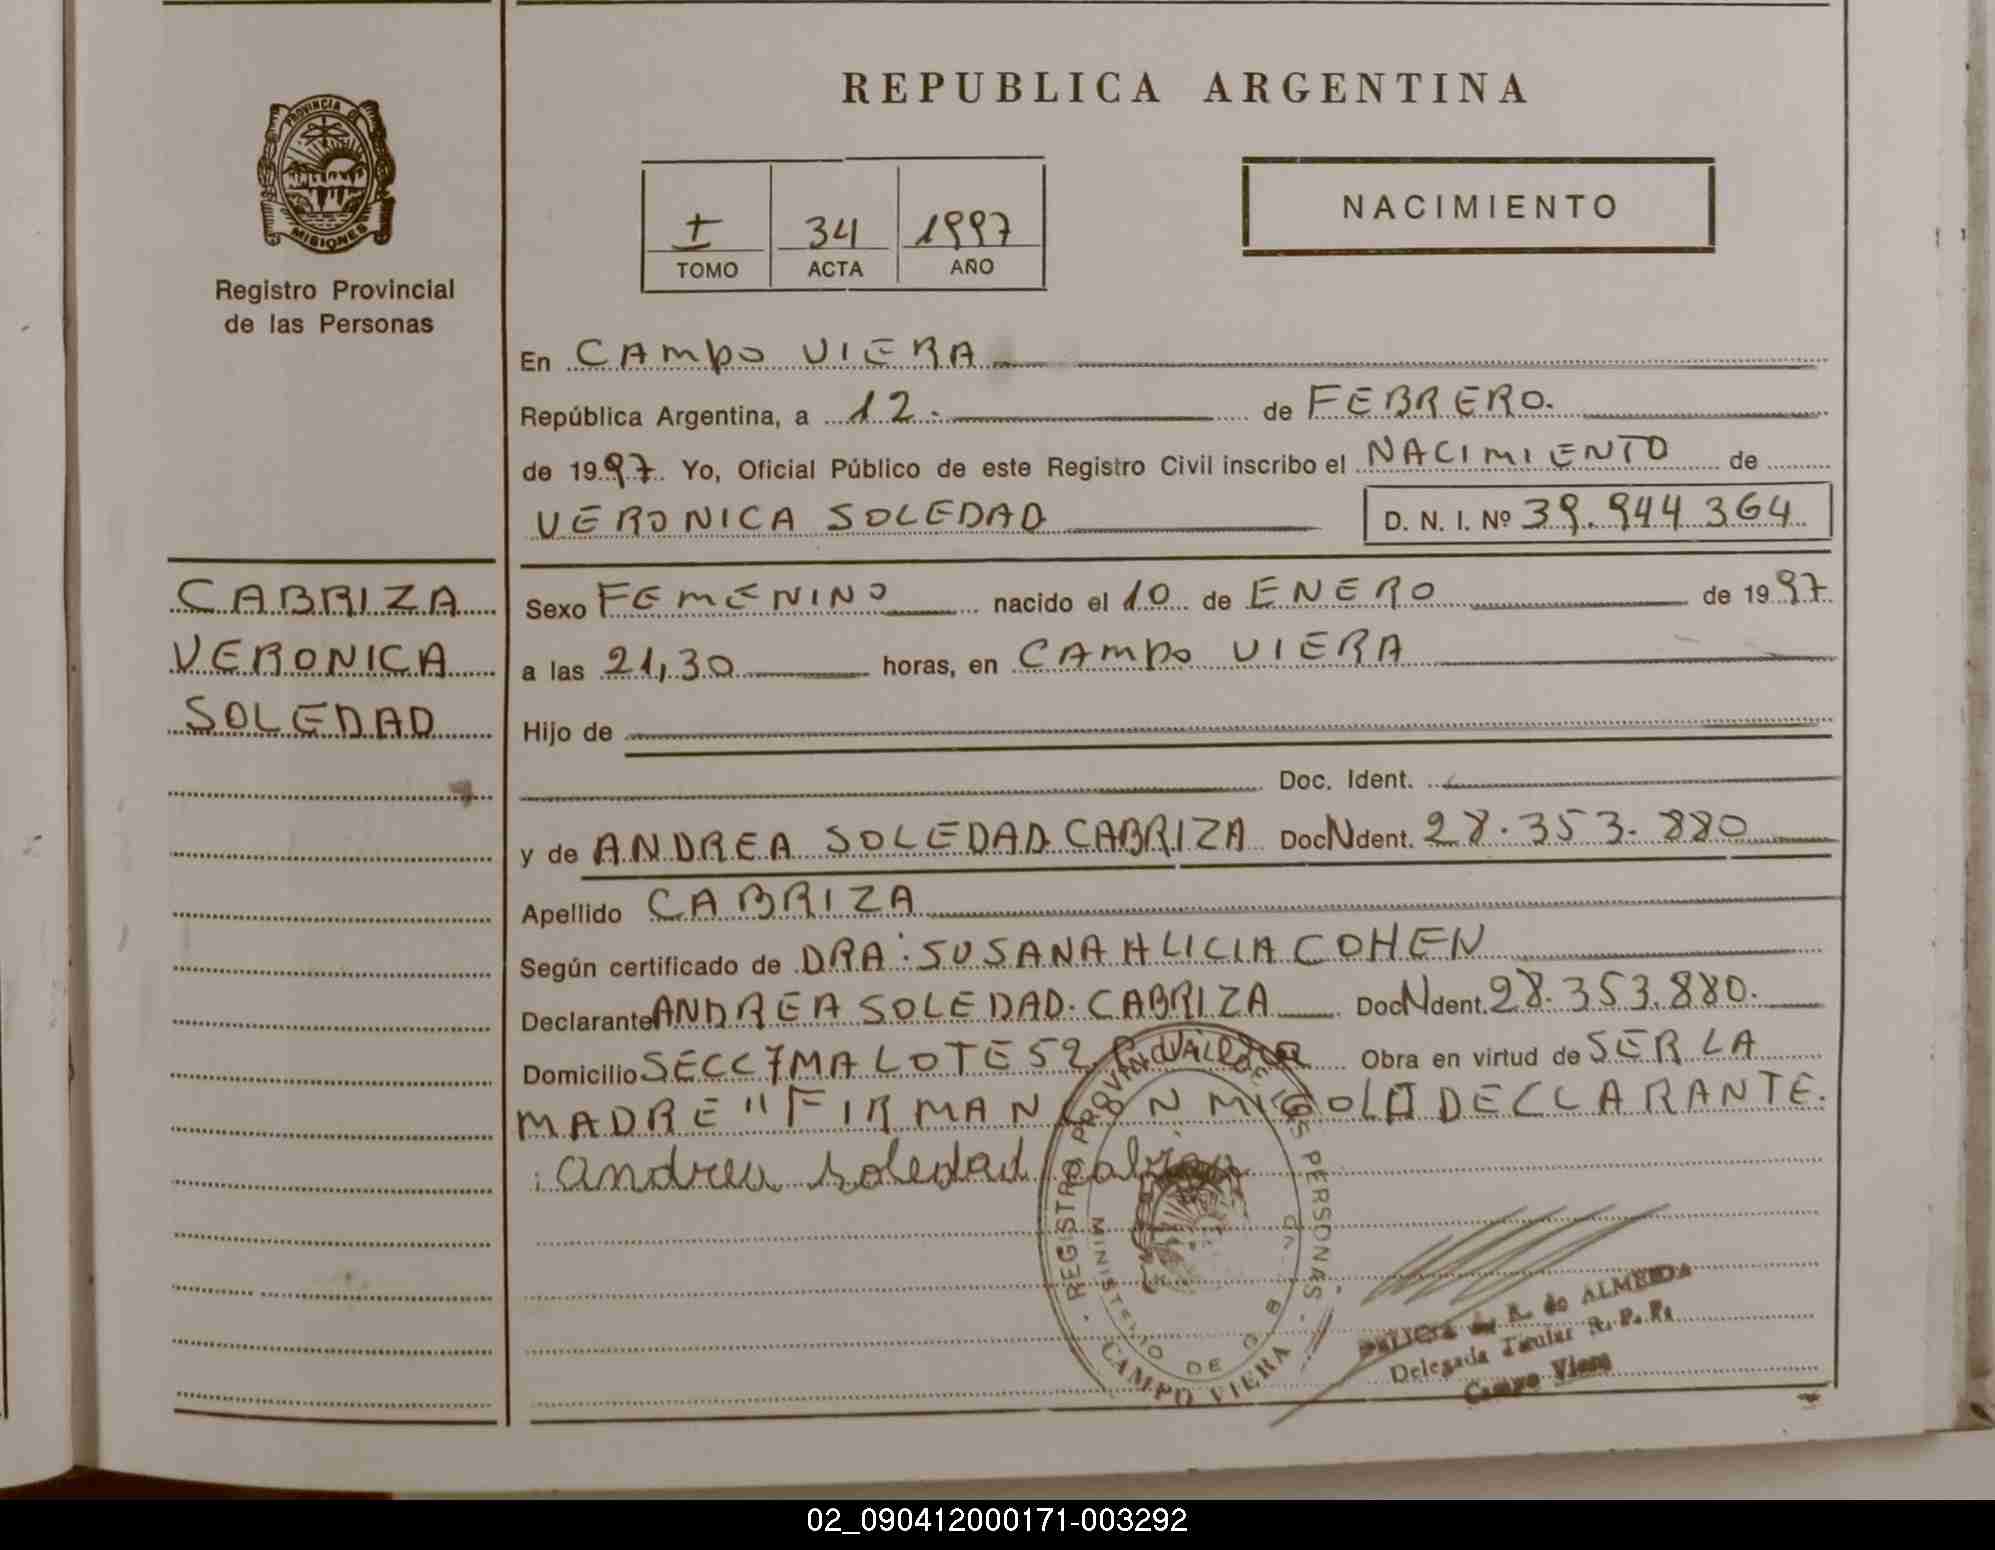 REPUBLICA ARGENTINA
PROVINCIA DE
MISIONES
Registro Provincial
de las Personas
I 34 1997
TOMO ACTA AÑO
NACIMIENTO
En CAMPO VIERA
República Argentina, a 12. de FEBRERO.
de 1997. Yo, Oficial Público de este Registro Civil inscribo el NACIMIENTO de
VERONICA SOLEDAD D. N. I. Nº 39.944 364
CABRIZA
VERONICA
SOLEDAD
Sexo FEMENINO nacido el 10 de ENERO de 1997
a las 21,30 horas, en CAMPO VIERA
Hijo de
Doc. Ident.
y de ANDREA SOLEDAD CABRIZA Doc N Ident. 28.353.880
Apellido CABRIZA
Según certificado de DRA: SUSANA ALICIA COHEN
Declarante ANDREA SOLEDAD. CABRIZA Doc N Ident. 28.353.880.
Domicilio SECC 7MA LOTE 52 Obra en virtud de SER LA
MADRE " FIRMAN MI LA DECLARANTE.
andrea soledad
REGISTRO PROVINCIAL DE LAS PERSONAS
MINISTERIO DE
CAMPO VIERA
R. de ALMEIDA
Delegada Titular R. P. P.
Campo Viera
02_090412000171-003292